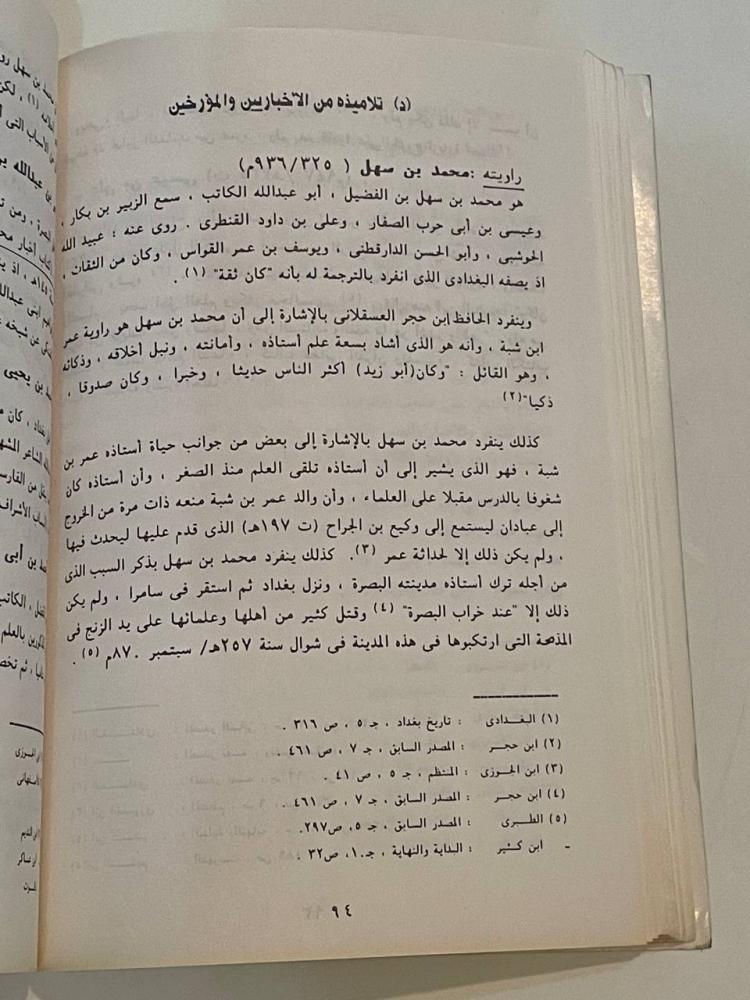 (د) تلاميذه من الأخباريين والمؤرخين
راويته :محمد بن سهل ( ٩٣٦/٣٢٥م)
هو محمد بن سهل بن الفضيل ، أبو عبدالله الكاتب ، سمع الزبير بن بكار ،
وعيسى بن أبى حرب الصفار ، وعلى بن داود القنطرى . روى عنه : عبيد الله
الحوشبى ، وأبو الحسن الدارقطنى ، ويوسف بن عمر القواس ، وكان من الثقات ،
اذ يصفه البغدادى الذى انفرد بالترجمة له بأنه "كان ثقة" (١) .
وينفرد الحافظ ابن حجر العسقلانى بالإشارة إلى أن محمد بن سهل هو راوية عمر
ابن شبة ، وأنه هو الذى أشاد بسعة علم أستاذه ، وأمانته ، ونبل أخلاقه ، وذكائه
، وهو القائل : "وكان(أبو زيد) أكثر الناس حديثا ، وخبرا ، وكان صدوقا ،
ذكيا"(٢)
كذلك ينفرد محمد بن سهل بالإشارة إلى بعض من جوانب حياة أستاذه عمر بن
شبة ، فهو الذى يشير إلى أن أستاذه تلقى العلم منذ الصغر ، وأن أستاذه كان
شغوفا بالدرس مقبلا على العلماء ، وأن والد عمر بن شبة منعه ذات مرة من الخروج
إلى عبادان ليستمع إلى وكيع بن الجراح (ت ١٩٧هـ) الذى قدم عليها ليحدث فيها
، ولم يكن ذلك إلا لحداثة عمر (٣). كذلك ينفرد محمد بن سهل بذكر السبب الذى
من أجله ترك أستاذه مدينته البصرة ، ونزل بغداد ثم استقر فى سامرا ، ولم يكن
ذلك إلا "عند خراب البصرة" (٤) وقتل كثير من أهلها وعلمائها على يد الزنج فى
المذبحة التى ارتكبوها فى هذه المدينة فى شوال سنة ٢٥٧هـ/ سبتمبر ٨٧٠م (٥) .
(١) البغدادى : تاريخ بغداد ، جـ ٥ ، ص ٣١٦ .
(٢) ابن حجر : المصدر السابق ، جـ ٧ ، ص ٤٦١ .
(٣) ابن الجوزى : المنتظم ، جـ ٥ ، ص ٤١ .
(٤) ابن حجر : المصدر السابق ، جـ ٧ ، ص ٤٦١ .
(٥) الطبرى : المصدر السابق ، جـ ٥، ص٢٩٧.
- ابن كثير : البداية والنهاية ، جـ١٠، ص٣٢ .
٩٤